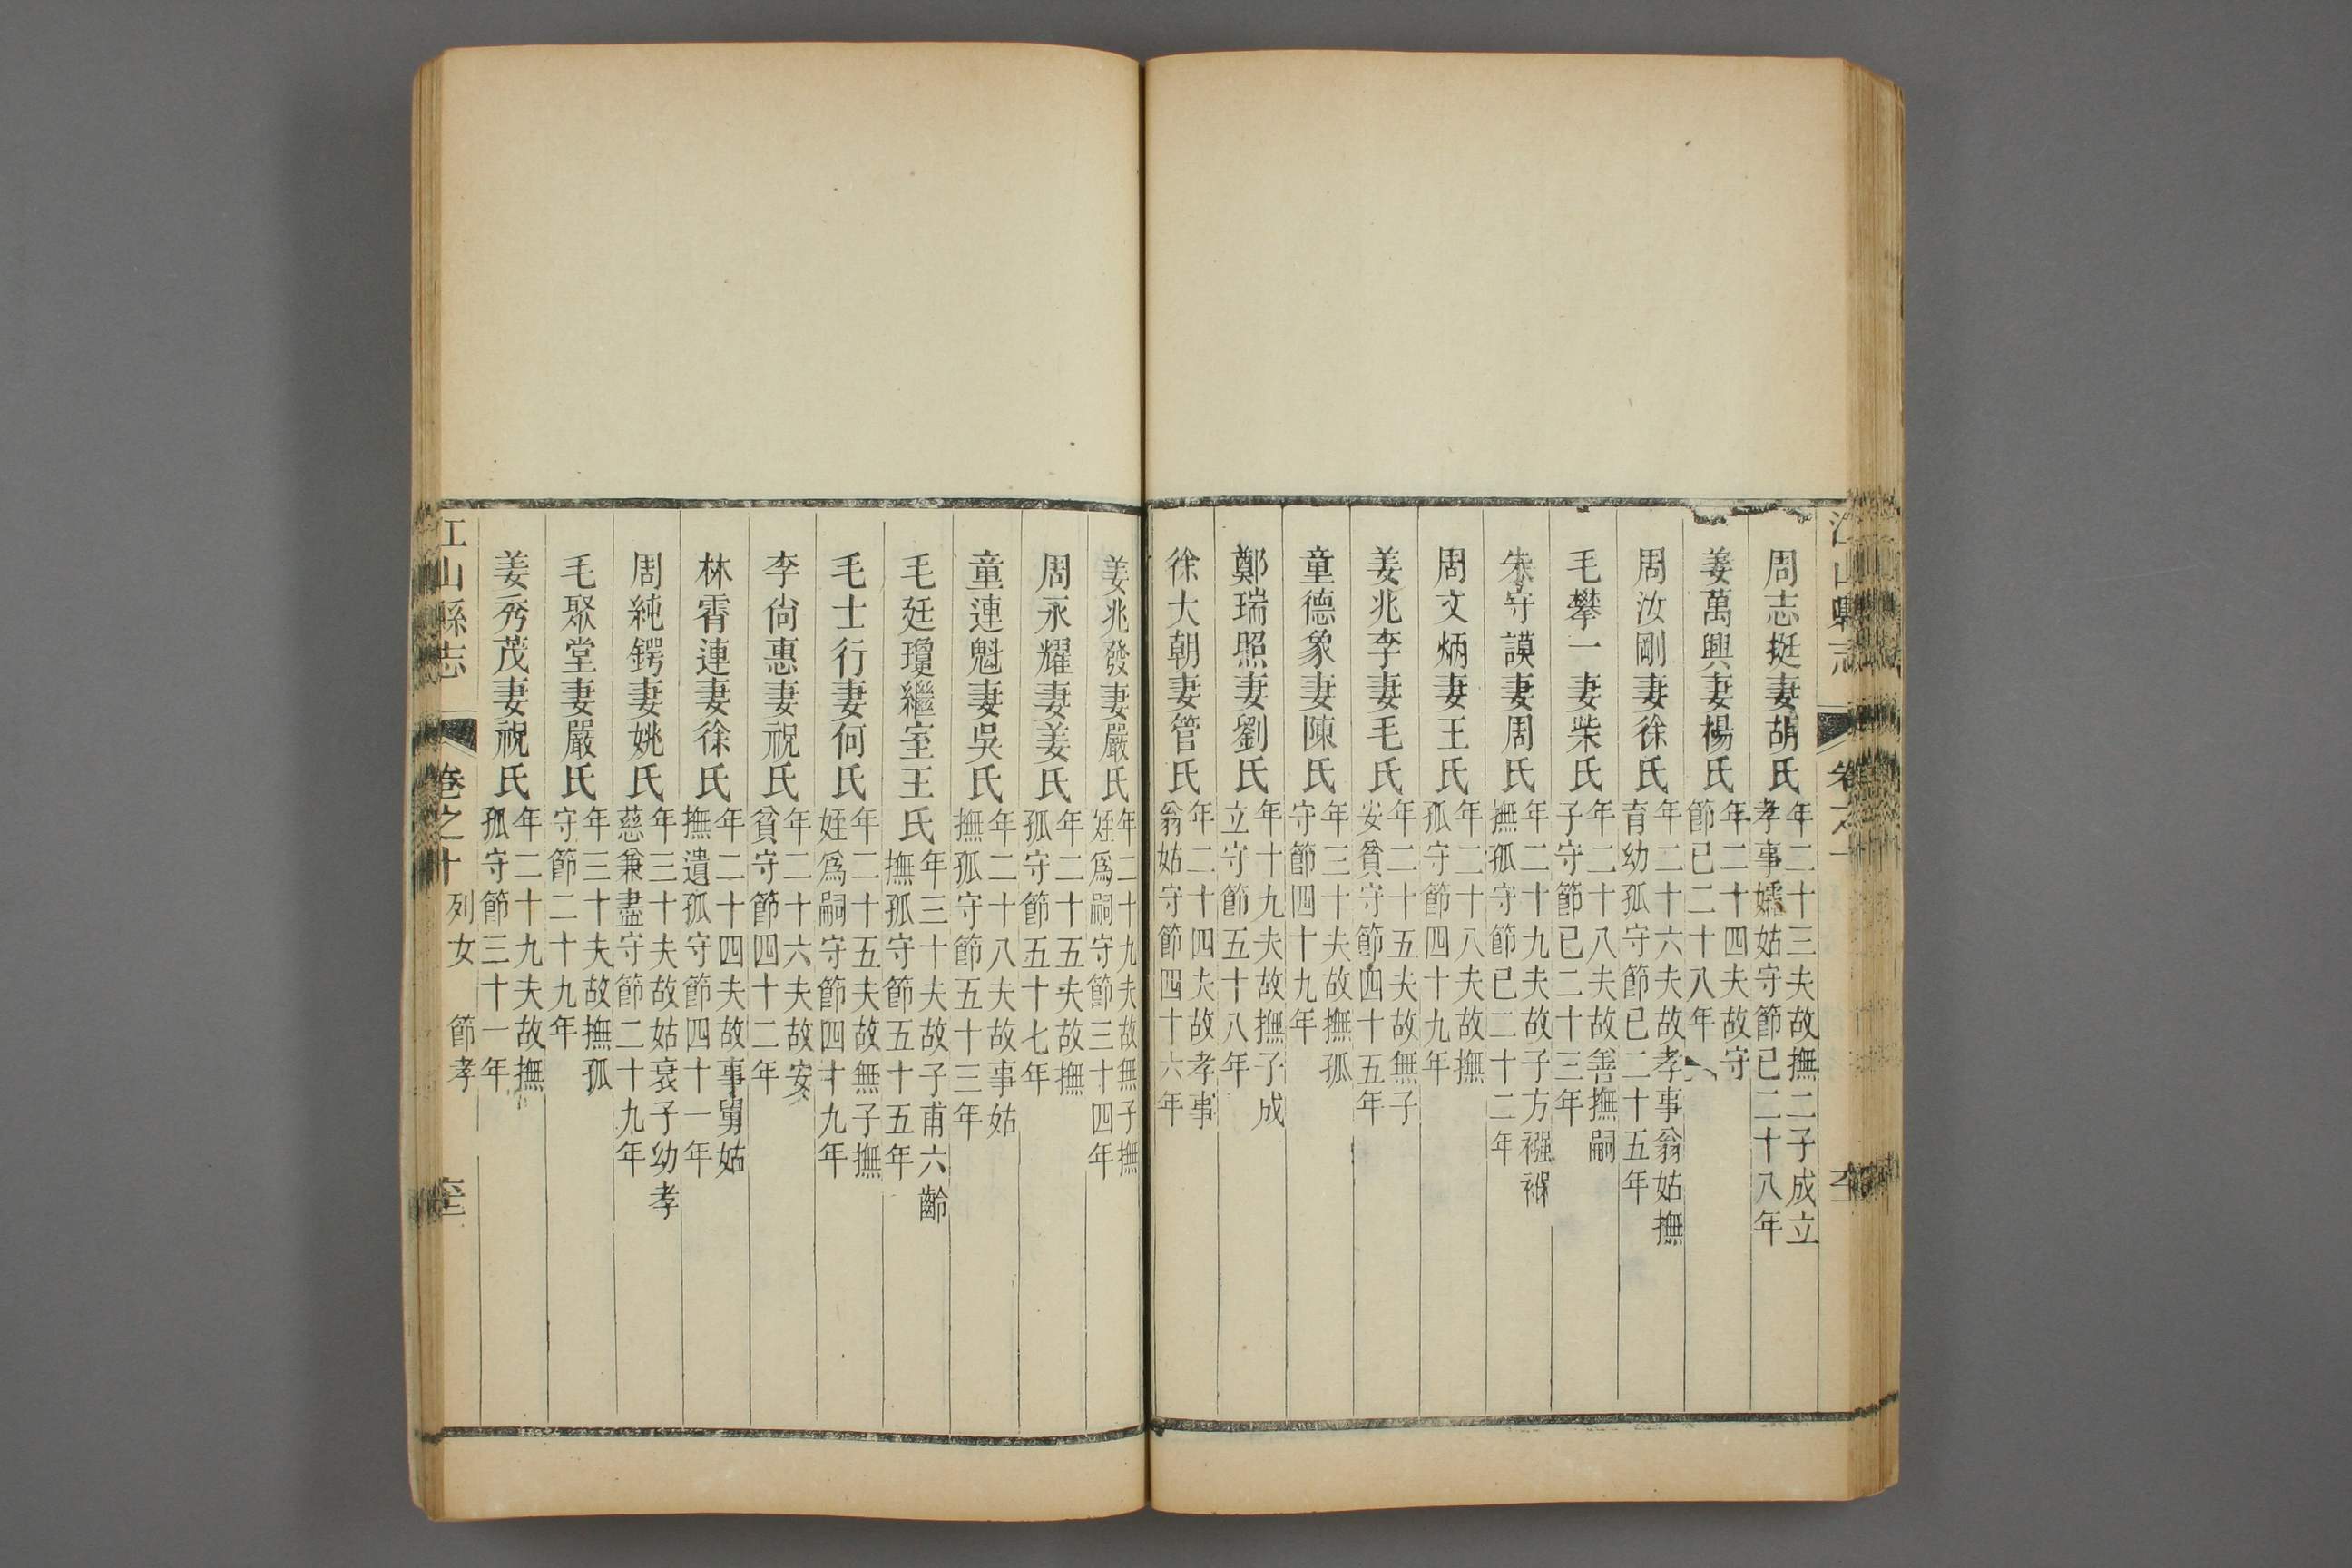 周志挺妻胡氏年二十三夫故撫二子成立孝事孀姑守節已二十八年
姜萬興妻楊氏年二十四夫故守節已二十八年
周汝剛妻徐氏年二十六夫故孝事翁姑撫育幼孤守節已二十五年
毛攀一妻柴氏年二十八夫故善撫嗣子守節已二十三年
朱守謨妻周氏年二十九夫故子方襁褓撫孤守節已二十二年
周文炳妻王氏年二十八夫故撫孤守節四十九年
姜兆李妻毛氏年二十五夫故無子安貧守節四十五年
童德象妻陳氏年三十夫故撫孤守節四十九年
鄭瑞照妻劉氏年十九夫故撫子成立守節五十八年
徐大朝妻管氏年二十四夫故孝事翁姑守節四十六年
姜兆發妻嚴氏年二十九夫故無子撫姪爲嗣守節三十四年
周永耀妻姜氏年二十五夫故撫孤守節五十七年
童連魁妻吳氏年二十八夫故事姑撫孤守節五十三年
毛廷瓊繼室王氏年三十夫故子甫六齡撫孤守節五十五年
毛士行妻何氏年二十五夫故無子撫姪爲嗣守節四十九年
李尙惠妻祝氏年二十六夫故安貧守節四十二年
林霄連妻徐氏年二十四夫故事舅姑撫遺孤守節四十一年
周純鍔妻姚氏年三十夫故姑衰子幼孝慈兼盡守節二十九年
毛聚堂妻嚴氏年三十夫故撫孤守節二十九年
姜秀茂妻祝氏年二十九夫故撫孤守節三十一年
江山縣志 卷之十 列女 節孝